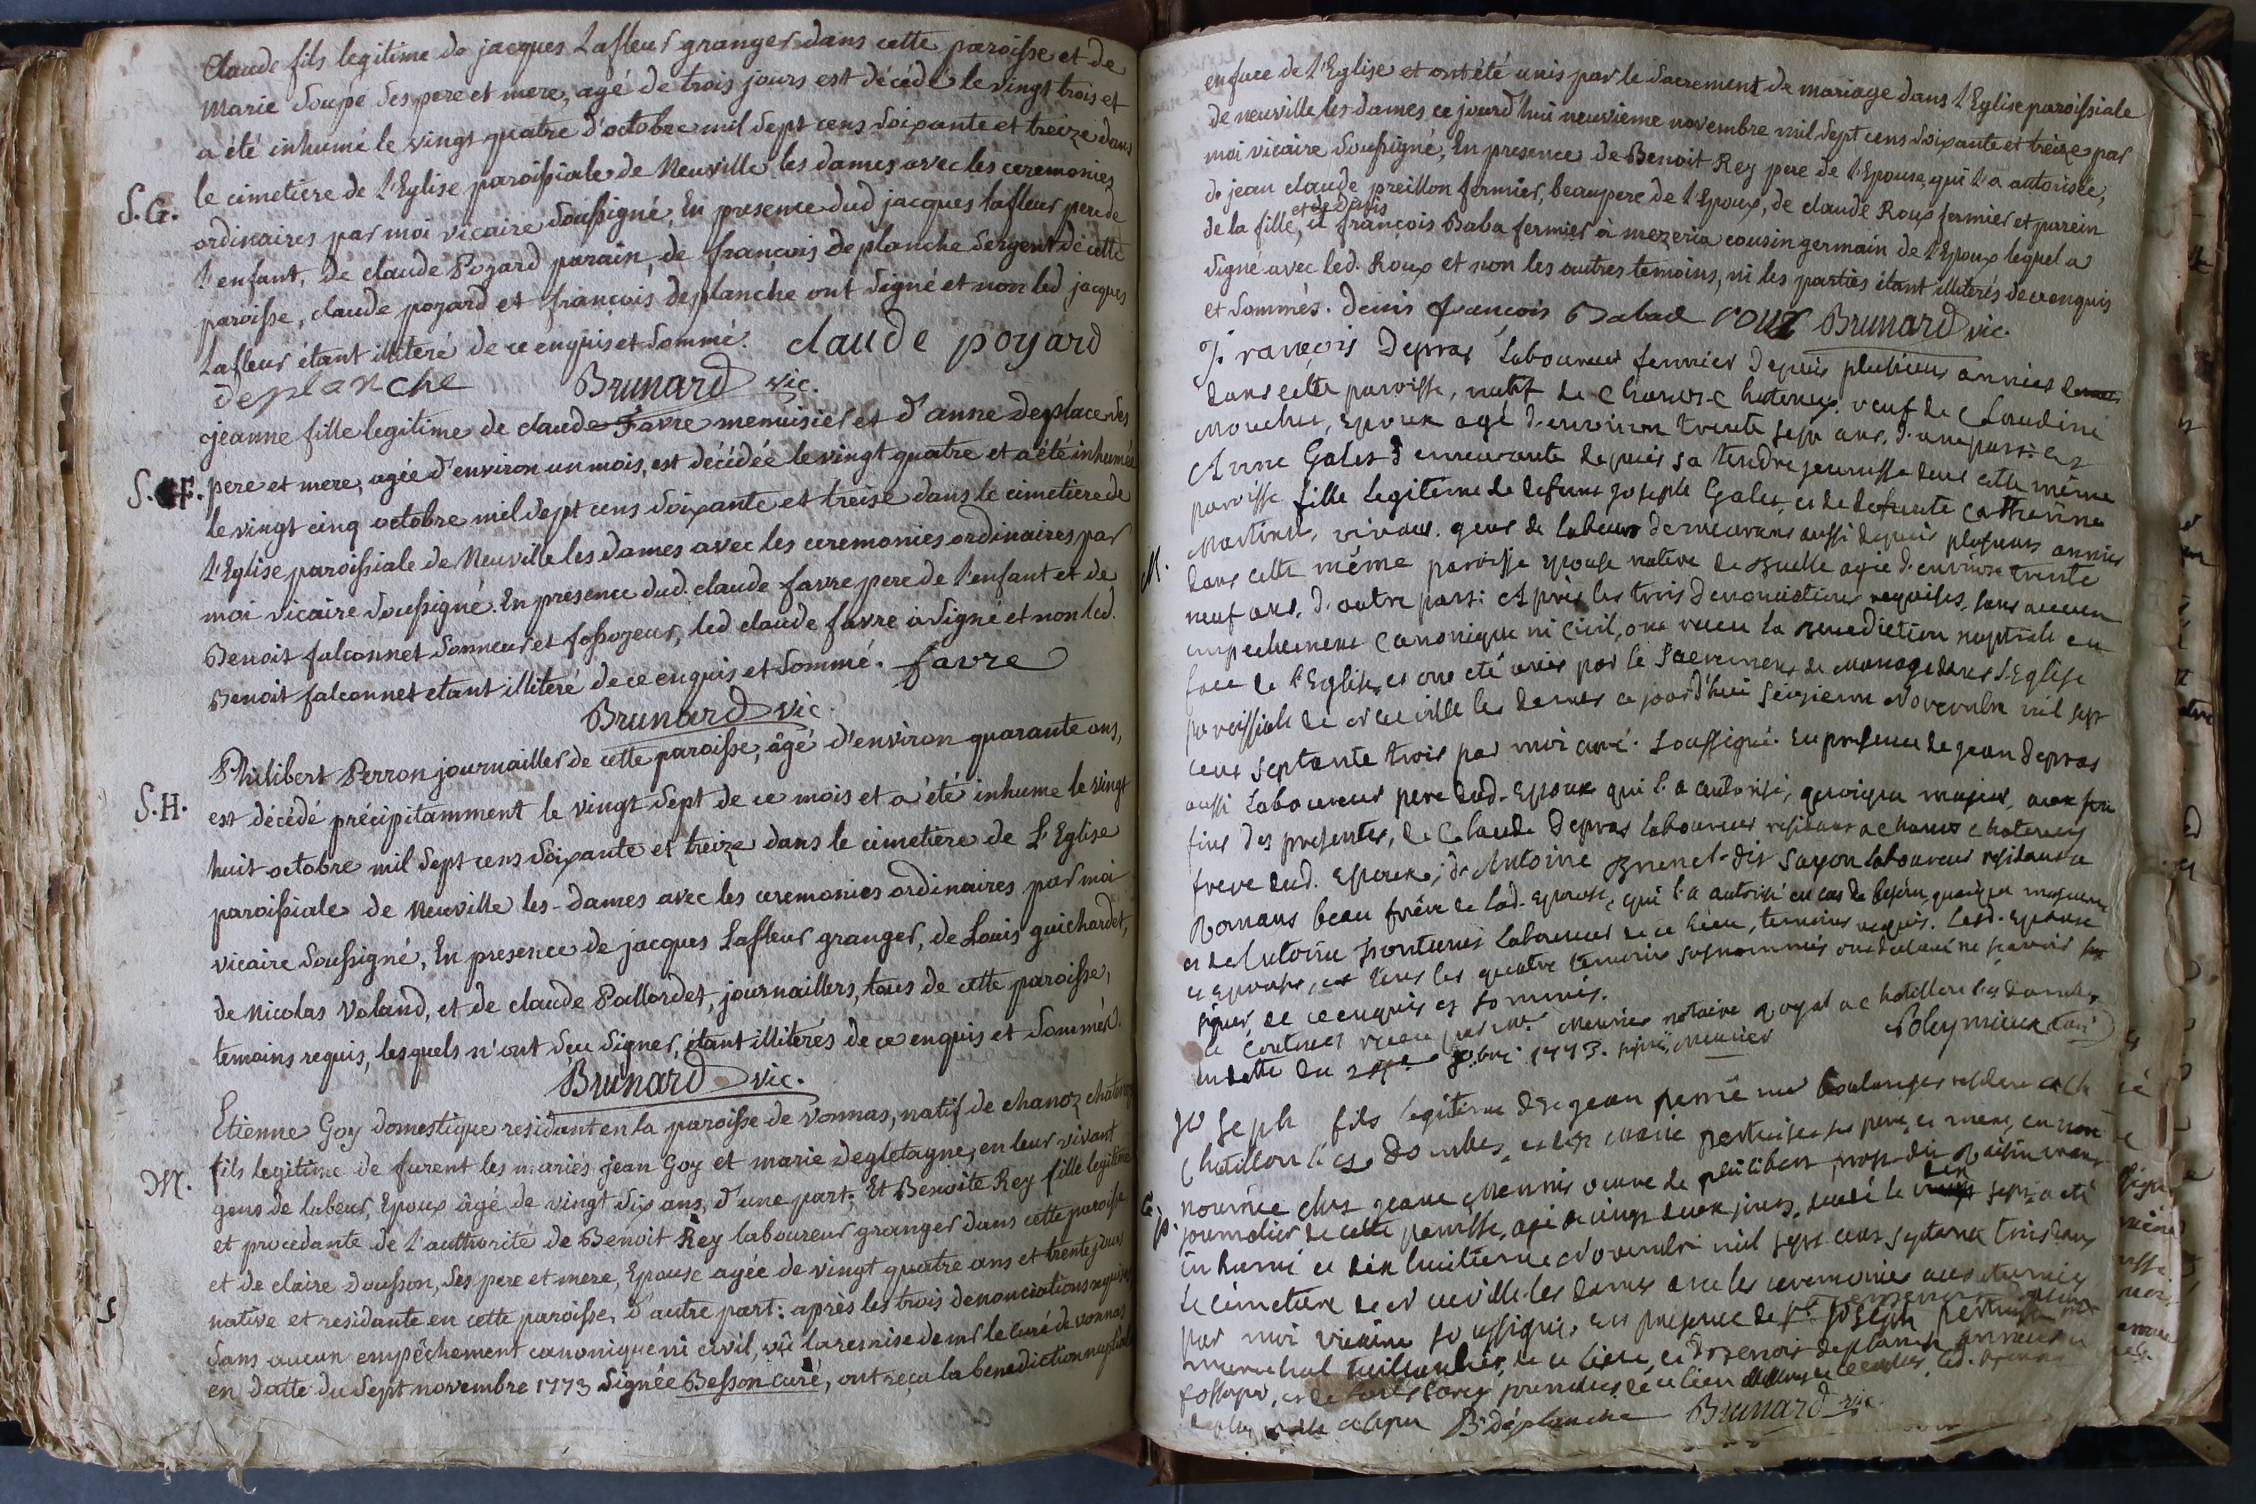 Claude fils legitime de jacques Lafleur granger dans cette paroisse et de
Marie Soupe ses pere et mere, agé de trois jours est décédé le vingt trois et
a été inhumé le vingt quatre d'octobre mil sept cens soixante et treize dans
le cimetiere de l'Eglise paroissiale de Neuville les dames avec les ceremonies
S.G.
ordinaires par moi vicaire soussigné, En presence dud jacques lafleur pere de
l'enfant, de claude Poyard parain, de françois deplanche sergent de cette
paroisse, claude poyard et françois deplanche ont signé et non led jacques
Lafleur étant illiteré de ce enquis et sommé. claude poyard
deplanche Brunard vic.
jeanne fille legitime de claude Favre menuisier et d'anne deplace ses
S. F. pere et mere, agée d'environ un mois, est décédée le vingt quatre et a été inhumée
le vingt cinq octobre mil sept cens soixante et treise dans le cimetiere de
l'Eglise paroissiale de Neuville les dames avec les ceremonies ordinaires par
moi vicaire soussigné. En presence dud. claude favre pere de l'enfant et de
Benoit falconnet sonneur et fossoyeur, led claude favre a signé et non led.
Benoit falconnet etant illiteré de ce enquis et sommé. favre
Brunard vic.
Philibert Perron journaillier de cette paroisse, âgé d'environ quarante ans,
S.H. est décédé précipitamment le vingt sept de ce mois et a été inhume le vingt
huit octobre mil sept cens soixante et treize dans le cimetiere de L'Eglise
paroissiale de Neuville les-dames avec les ceremonies ordinaires par moi
vicaire soussigné, En presence de jacques Lafleur granger, de Louis guichardet,
de Nicolas Voland, et de claude Paillardet, journailliers, tous de cette paroisse,
temoins requis, lesquels n'ont seu signer, étant illiterés de ce enquis et sommés.
Brunard vic.
Etienne Goy domestique residant en la paroisse de vonnas, natif de chanoz chatenay
M. fils legitime de furent les mariés jean Goy et marie degletagne, en leur vivant
gens de labeur, Epoux âgé de vingt six ans, d'une part; Et Benoite Rey fille legitime
et procedante de l'authorité de Benoit Rey laboureur granger dans cette paroisse
et de claire dousson, ses pere et mere, Epouse agée de vingt quatre ans et trente jours
native et residante en cette paroisse, d'autre part: après les trois denonciations requises
sans aucun empêchement canonique ni civil, vû la remise de mr le Curé de vonnas
en datte du sept novembre 1773 signée Besson curé, ont reçu la benediction nuptiale
en face de l'Eglise et ont été unis par le sacrement de mariage dans l'Eglise paroissiale
de neuville les dames ce jourd'hui neuvieme novembre mil sept cens soixante et treize par
moi vicaire soussigné, En presence de Benoit Rey pere de l'Epouse, qui l'a autorisée,
de jean claude preillon fermier, beaupere de l'Epoux, de claude Roux fermier et parein
et de denis
de la fille, françois Baba fermier à mezeria cousin germain de l'Epoux lequel a
signé avec led. Roux et non les autres temoins, ni les parties étant illiterés de ce enquis
et sommés. denis françois Babad roux Brunard vic.
François Depras Laboureur fermier depuis plusieurs années
dans cette paroisse, natif de Chanoz Chatenay. veuf de Claudine
Mouchet, Epoux agé d'environ trente sept ans, d'une part: et
Anne Galet demeurante depuis sa tendre jeunesse dans cette même
paroisse fille legitime de defunt joseph Galet, et de defunte Catherine
Martinet, vivans gens de labeur demeurans aussi depuis plusieurs années
M. dans cette même paroisse Epouse native de agée d'environ trente
neuf ans, d'autre part: Après les trois denonciations requises, sans aucun
empechement canonique ni civil, ont receu la Benediction nuptiale en
face de l'Eglise, et ont eté unis par le Sacrement de Mariage dans l'Eglise
paroissiale de Neuville les dames ce jourd'hui seizieme Novembre mil sept
cent septante trois par moi curé soussigné. En presence de jean Depras
aussi Laboureur pere dud. Epoux qui l'a autorisé, quoique majeur, aux
fins des presentes, de Claude Depras laboureur residant a chanoz chatenay
frere dud. Epoux; de Antoine Brunet dit Sayon laboureur residant a
Romans beau frère de lad. Epouse, qui l'a autorisé en cas de besoin, quoique majeure
et de Antoine laboureur de ce lieu, temoins requis. Lesd. Epoux
et Epouse, et tous les quatre temoins susnommés ont declaré ne sçavoir
signer, de ce enquis et sommés.
Le Contract receu par me. Meunier notaire Royal a chatillon les dombes
en datte du 1773. signé Meunier Poleymieux Curé
Joseph fils legitime de jean pierre boulanger residant a
Chatillon les Dombes, et de marie ses pere et mere, en
nourrice chez jeane veuve de philibert dit
G. P. journalier de cette paroisse, agé de vingt deux jours, decedé le dix sept a eté
inhumé ce dix huitieme Novembre mil sept cens septante trois dans
le cimetiere de Neuville les dames avec les ceremonies accoutumées
par moi vicaire soussigné, en presence de Joseph
marechal taillandier de ce lieu, et de Benoit deplanche sonneur et
B. deplanche Brunard vic.